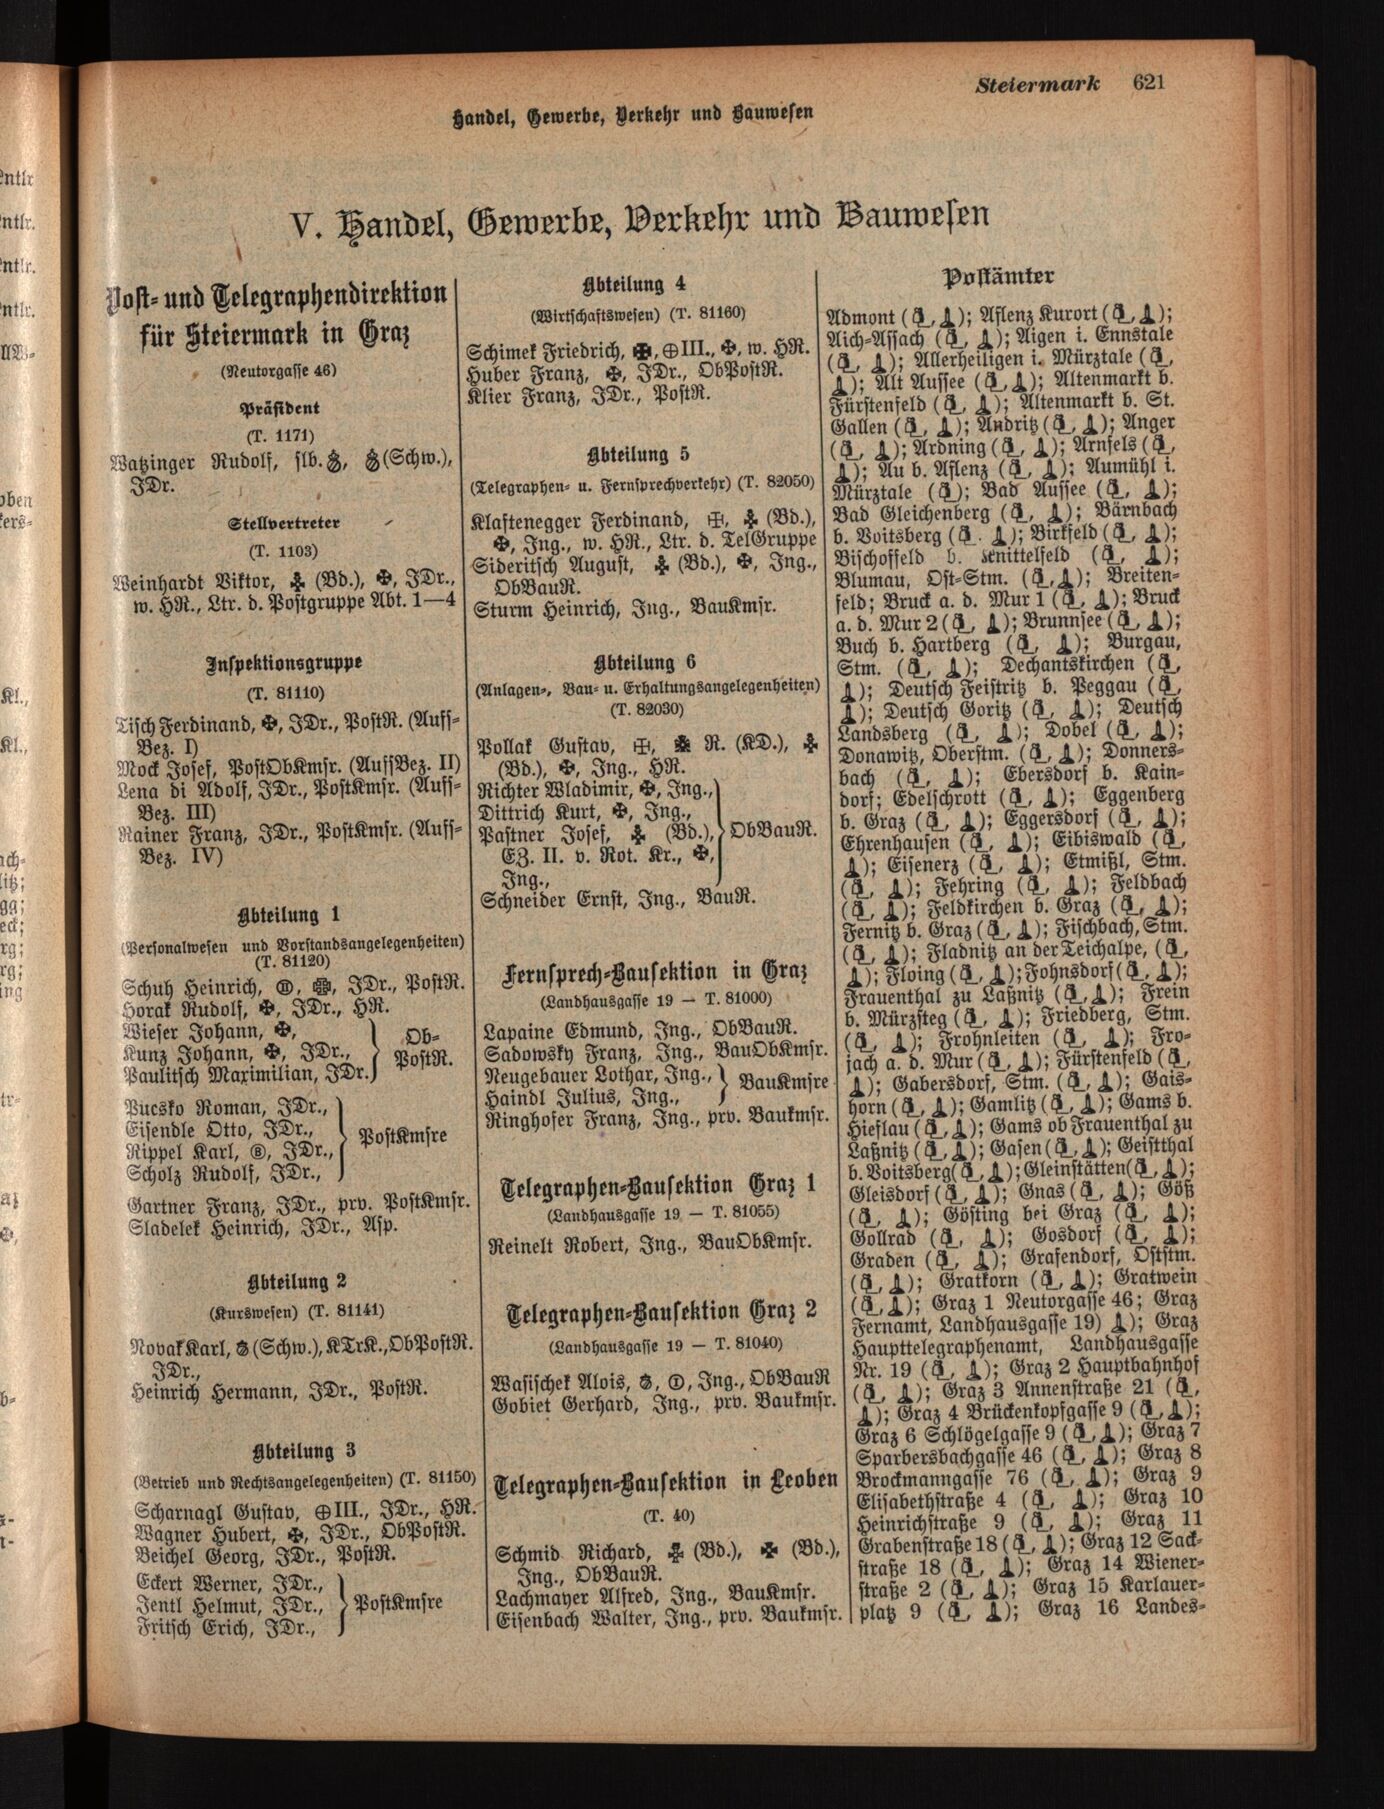 Steiermark 621
Handel, Gewerbe, Verkehr und Bauwesen
V. Handel, Gewerbe, Verkehr und Bauwesen
Post- und Telegraphendirektion
für Steiermark in Graz
(Neutorgasse 46)
Präsident
(T. 1171)
Watzinger Rudolf, slb. , (Schw.),
JDr.
Stellvertreter
(T. 1103)
Weinhardt Viktor, (Bd.), ✠, JDr.,
w. HR., Ltr. d. Postgruppe Abt. 1—4
Inspektionsgruppe
(T. 81110)
Tisch Ferdinand, ✠, JDr., PostR. (Auff-
Bez. I)
Mock Josef, PostObKmsr. (AuffBez. II)
Lena di Adolf, JDr., PostKmsr. (Auff-
Bez. III)
Rainer Franz, JDr., PostKmsr. (Auff-
Bez. IV)
Abteilung 1
(Personalwesen und Vorstandsangelegenheiten)
(T. 81120)
Schuh Heinrich, , , JDr., PostR.
Horak Rudolf, ✠, JDr., HR.
Wieser Johann, ✠,
Kunz Johann, ✠, JDr.,
Paulitsch Maximilian, JDr.
} Ob-
PostR.
Pucsko Roman, JDr.,
Eisendle Otto, JDr.,
Rippel Karl, Ⓑ, JDr.,
Scholz Rudolf, JDr.,
} PostKmsre
Gartner Franz, JDr., prv. PostKmsr.
Sladelek Heinrich, JDr., Asp.
Abteilung 2
(Kurswesen) (T. 81141)
Novak Karl, (Schw.), KTrK., ObPostR.
JDr.,
Heinrich Hermann, JDr., PostR.
Abteilung 3
(Betrieb und Rechtsangelegenheiten) (T. 81150)
Scharnagl Gustav, ⊕III., JDr., HR.
Wagner Hubert, ✠, JDr., ObPostR.
Beichel Georg, JDr., PostR.
Eckert Werner, JDr.,
Jentl Helmut, JDr.,
Fritsch Erich, JDr.,
} PostKmsre
Abteilung 4
(Wirtschaftswesen) (T. 81160)
Schimek Friedrich, ✠, ⊕III., ✠, w. HR.
Huber Franz, ✠, JDr., ObPostR.
Klier Franz, JDr., PostR.
Abteilung 5
(Telegraphen- u. Fernsprechverkehr) (T. 82050)
Klaftenegger Ferdinand, , (Bd.),
✠, Ing., w. HR., Ltr. d. TelGruppe
Sideritsch August, (Bd.), ✠, Ing.,
ObBauR.
Sturm Heinrich, Ing., BauKmsr.
Abteilung 6
(Anlagen-, Bau- u. Erhaltungsangelegenheiten)
(T. 82030)
Pollak Gustav, , R. (KD.),
(Bd.), ✠, Ing., HR.
Richter Wladimir, ✠, Ing.,
Dittrich Kurt, ✠, Ing.,
Pastner Josef, (Bd.),
EZ. II. v. Rot. Kr., ✠,
Ing.,
} ObBauR.
Schneider Ernst, Ing., BauR.
Fernsprech-Bausektion in Graz
(Landhausgasse 19 — T. 81000)
Lapaine Edmund, Ing., ObBauR.
Sadowsky Franz, Ing., BauObKmsr.
Neugebauer Lothar, Ing.,
Haindl Julius, Ing.,
} BauKmsre
Ringhofer Franz, Ing., prv. Baukmsr.
Telegraphen-Bausektion Graz 1
(Landhausgasse 19 — T. 81055)
Reinelt Robert, Ing., BauObKmsr.
Telegraphen-Bausektion Graz 2
(Landhausgasse 19 — T. 81040)
Wasischek Alois, , , Ing., ObBauR
Gobiet Gerhard, Ing., prv. Baukmsr.
Telegraphen-Bausektion in Leoben
(T. 40)
Schmid Richard, (Bd.), (Bd.),
Ing., ObBauR.
Lachmayer Alfred, Ing., BauKmsr.
Eisenbach Walter, Ing., prv. Baukmsr.
Postämter
Admont ( , ); Aflenz Kurort ( , );
Aich-Assach ( , ); Aigen i. Ennstale
( , ); Allerheiligen i. Mürztale ( ,
); Alt Aussee ( , ); Altenmarkt b.
Fürstenfeld ( , ); Altenmarkt b. St.
Gallen ( , ); Andritz ( , ); Anger
( , ); Ardning ( , ); Arnfels ( ,
); Au b. Aflenz ( , ); Aumühl i.
Mürztale ( ); Bad Aussee ( , );
Bad Gleichenberg ( , ); Bärnbach
b. Voitsberg ( . ); Birkfeld ( , );
Bischoffeld b. Knittelfeld ( , );
Blumau, Ost-Stm. ( , ); Breiten-
feld; Bruck a. d. Mur 1 ( , ); Bruck
a. d. Mur 2 ( , ); Brunnsee ( , );
Buch b. Hartberg ( , ); Burgau,
Stm. ( , ); Dechantskirchen ( ,
); Deutsch Feistritz b. Peggau ( ,
); Deutsch Goritz ( , ); Deutsch
Landsberg ( , ); Dobel ( , );
Donawitz, Oberstm. ( , ); Donners-
bach ( , ); Ebersdorf b. Kain-
dorf; Edelschrott ( , ); Eggenberg
b. Graz ( , ); Eggersdorf ( , );
Ehrenhausen ( , ); Eibiswald ( ,
); Eisenerz ( , ); Etmißl, Stm.
( , ); Fehring ( , ); Feldbach
( , ); Feldkirchen b. Graz ( , );
Fernitz b. Graz ( , ); Fischbach, Stm.
( , ); Fladnitz an der Teichalpe, ( ,
); Floing ( , ); Fohnsdorf ( , );
Frauenthal zu Laßnitz ( , ); Frein
b. Mürzsteg ( , ); Friedberg, Stm.
( , ); Frohnleiten ( , ); Fro-
jach a. d. Mur ( , ); Fürstenfeld ( ,
); Gabersdorf, Stm. ( , ); Gais-
horn ( , ); Gamlitz ( , ); Gams b.
Hieflau ( , ); Gams ob Frauenthal zu
Laßnitz ( , ); Gasen ( , ); Geistthal
b. Voitsberg ( , ); Gleinstätten ( , );
Gleisdorf ( , ); Gnas ( , ); Göß
( , ); Gösting bei Graz ( , );
Gollrad ( , ); Gosdorf ( , );
Graden ( , ); Grafendorf, Oststm.
( , ); Gratkorn ( , ); Gratwein
( , ); Graz 1 Neutorgasse 46; Graz
Fernamt, Landhausgasse 19) ); Graz
Haupttelegraphenamt, Landhausgasse
Nr. 19 ( , ); Graz 2 Hauptbahnhof
( , ); Graz 3 Annenstraße 21 ( ,
); Graz 4 Brückenkopfgasse 9 ( , );
Graz 6 Schlögelgasse 9 ( , ); Graz 7
Sparbersbachgasse 46 ( , ); Graz 8
Brockmanngasse 76 ( , ); Graz 9
Elisabethstraße 4 ( , ); Graz 10
Heinrichstraße 9 ( , ); Graz 11
Grabenstraße 18 ( , ); Graz 12 Sack-
straße 18 ( , ); Graz 14 Wiener-
straße 2 ( , ); Graz 15 Karlauer-
platz 9 ( , ); Graz 16 Landes-